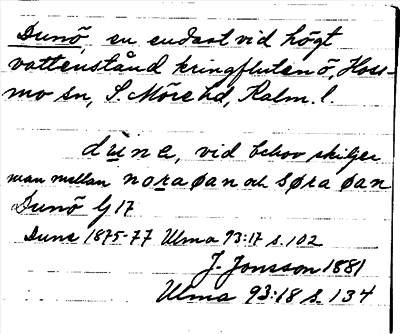 Dunö, en endast vid högt
vattenstånd kringfluten ö, Hoss-
mo sn, S. Möre hd, Kalm. l.
duna, vid behov skiljer
man mellan noraøan och søraøan
Dunö Lj 17
Duns 1875-77 Ulma 93:17 s. 102
J. Jonsson 1881
Ulma 93:18 s. 134